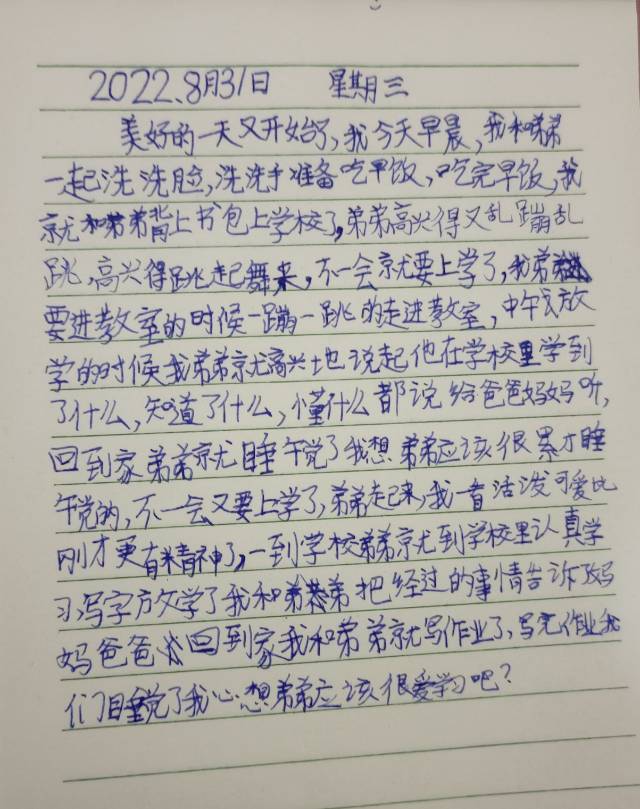 2022.8月31日 星期三
美好的一天又开始了,我今天早晨,我和弟弟
一起洗洗脸,洗洗手准备吃早饭,吃完早饭,我
就和弟弟背上书包上学校了,弟弟高兴得又乱蹦乱
跳,高兴得跳起舞来,不一会就要上学了,我弟弟
要进教室的时候一蹦一跳的走进教室,中午放
学的时候我弟弟就高兴地说起他在学校里学到
了什么,知道了什么,懂什么都说给爸爸妈妈听,
回到家弟弟就睡午觉了我想弟弟应该很累才睡
午觉的,不一会又要上学了,弟弟起来,我一看活泼可爱比
刚才更有精神了,一到学校弟弟就到学校里认真学
习,写字放学了我和弟弟把经过的事情告诉妈
妈爸爸回到家我和弟弟就写作业了,写完作业我
们睡觉了我心想弟弟应该很爱学习吧?